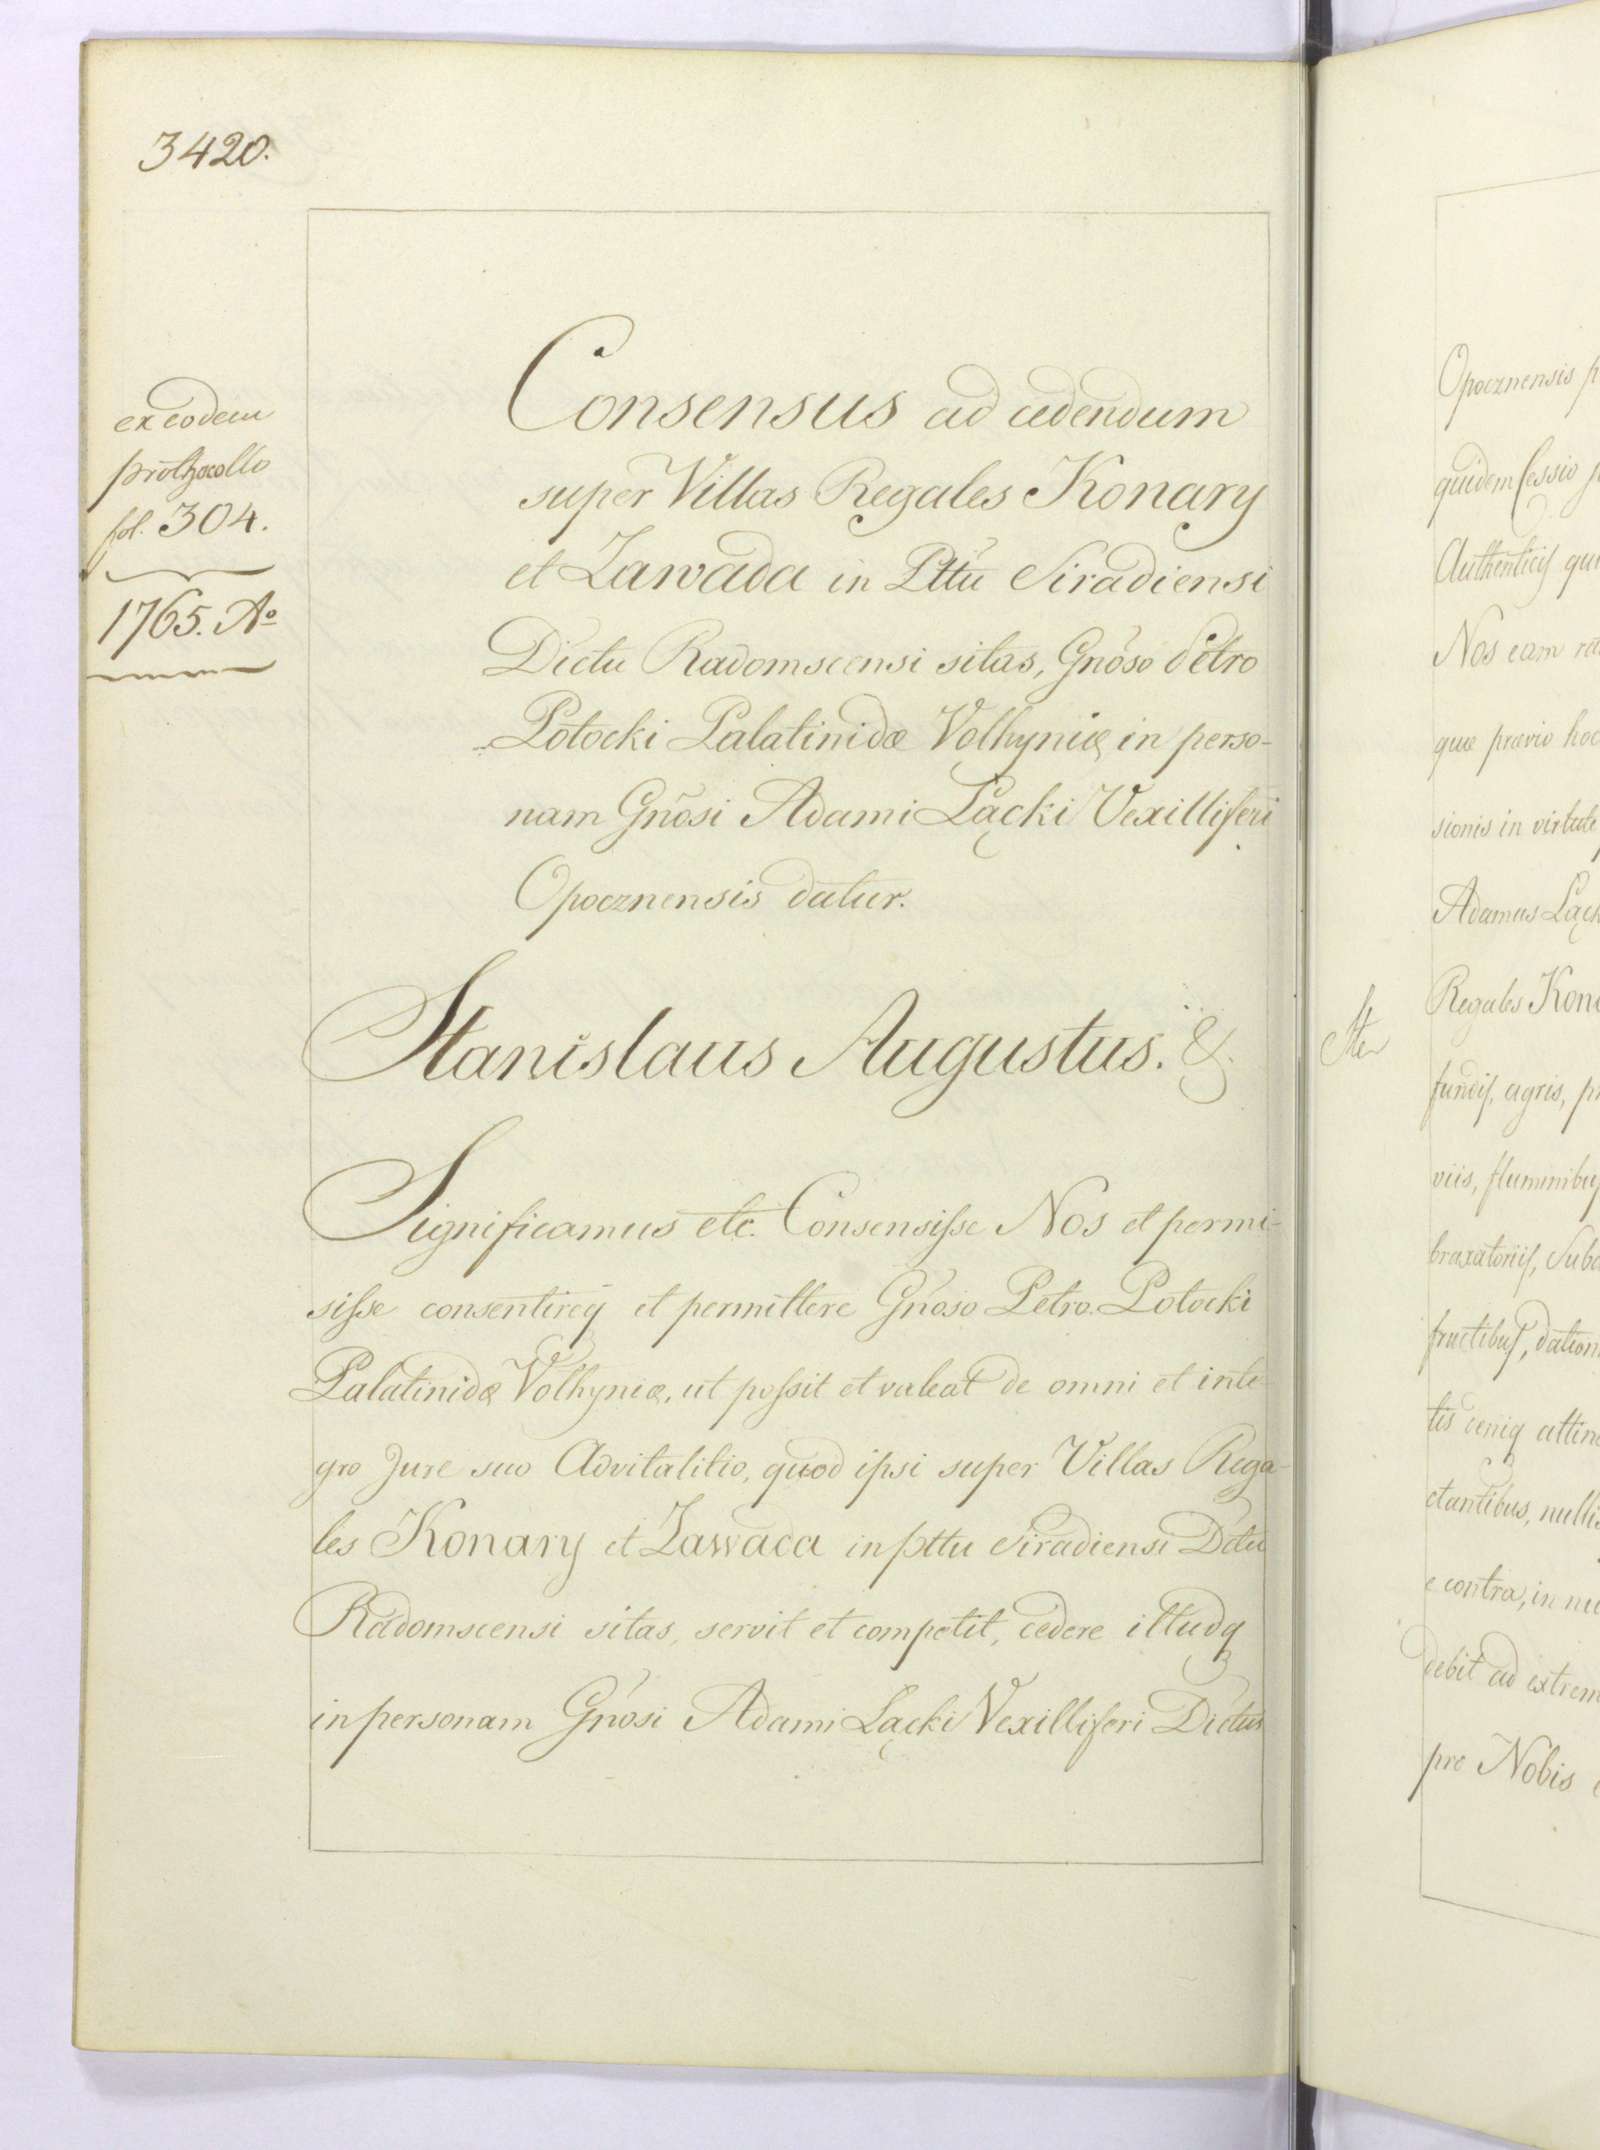 3420.
ex eodem
prothocollo
fol. 304.
1765. Aº
Consensus ad cedendum
super Villas Regales Konary
et Zawada in Pttu Siradiensi
Dictu Radomscensi sitas, Gnoso Petro
Potocki Palatinidæ Volhyniæ, in perso-
nam Gnosi Adami Łącki Vexilliferi
Opocznensis datur.
Stanislaus Augustus. &.
Significamus etc. Consensisse Nos et permi-
sisse consentireq et permittere Gnoso Petro Potocki
Palatinidæ Volhyniæ, ut possit et valeat de omni et inte-
gro Jure suo Advitalitio, quod ipsi super Villas Rega-
les Konary et Zawada in pttu Siradiensi Dctu
Radomscensi sitas, servit et competit, cedere illudq
in personam Gnosi Adami Łącki Vexilliferi Dictus
Opocznensis
quidem Cessio
Authenticis
Nos eam
quæ prævio hoc
sionis in virtute
Adamus
Regales
fundis, agris,
viis, fluminibus
braxatoriis,
fructibus,
tis deniq
ctantibus,
e contra, in
debit ad
pro Nobis